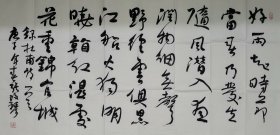 好雨知時節
當春乃發生
隨風潛入夜
潤物細無聲
野徑雲俱黑
江船火獨明
曉看紅濕處
花重錦官城
錄杜甫